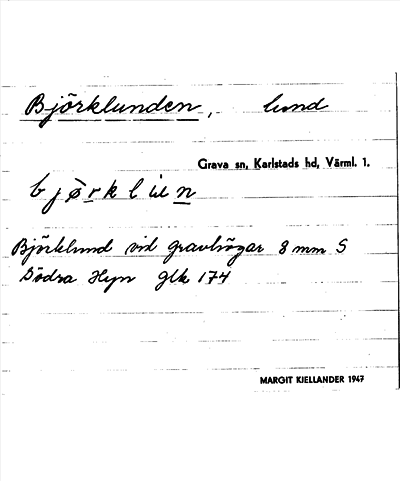 Björklunden, lund
Grava sn, Karlstads hd, Värml. l.
bjørklun
Björklund vid gravhögar 8 mm S
Södra Hyn glk 174
MARGIT KJELLANDER 1947